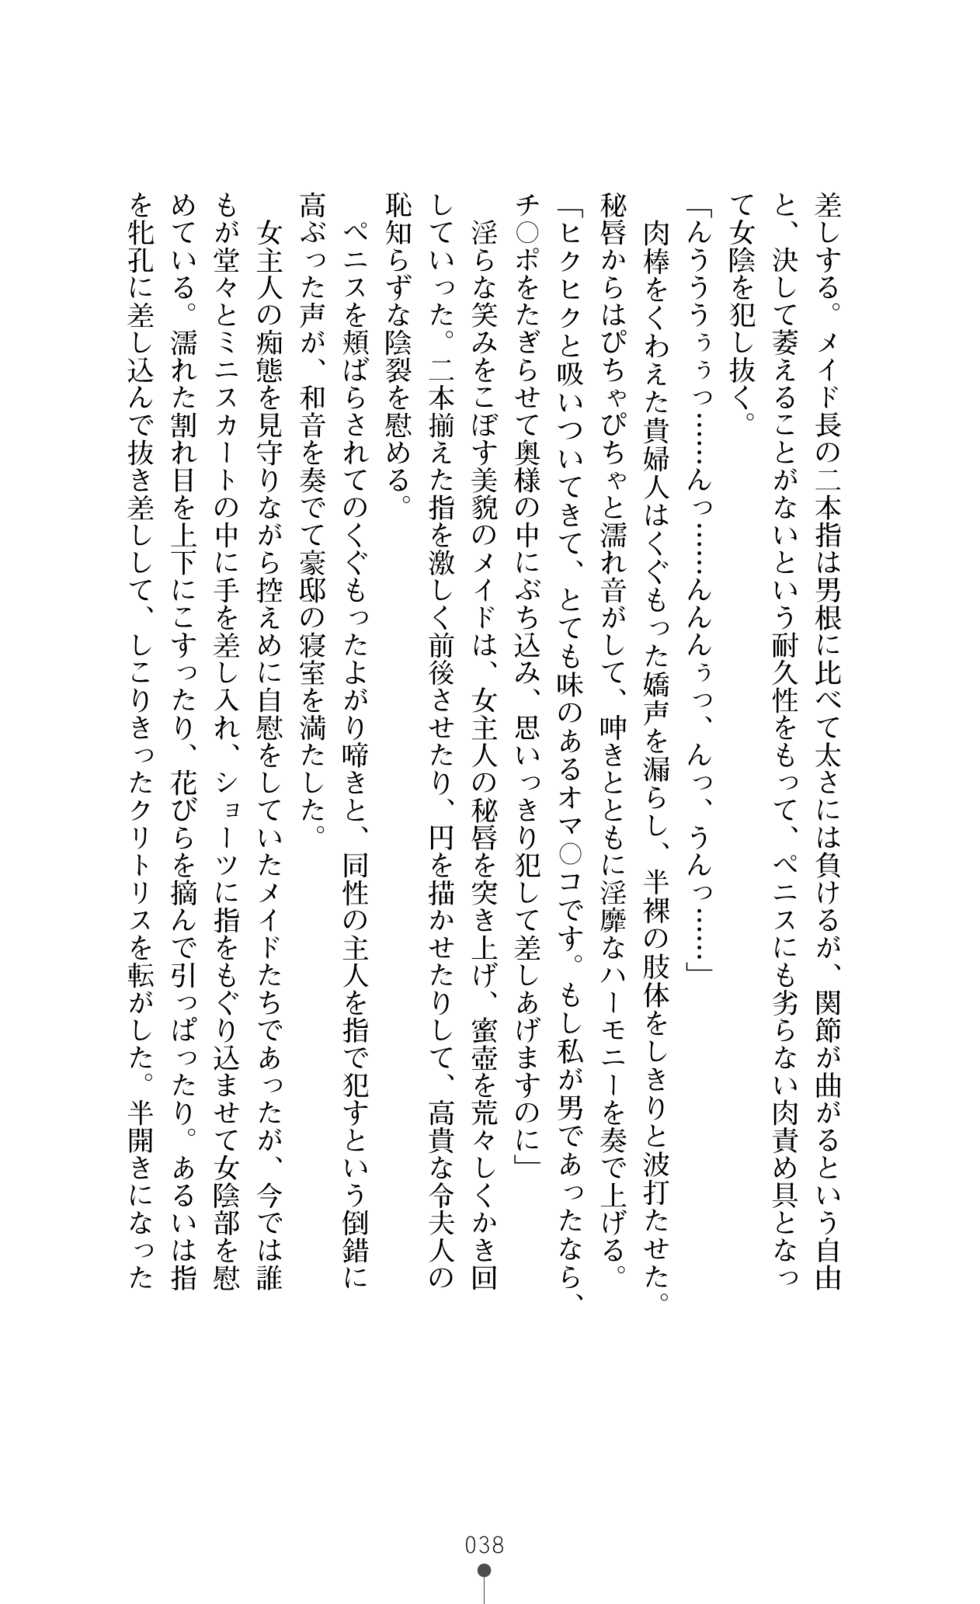 差しする。メイド長の二本指は男根に比べて太さには負けるが、関節が曲がるという自由
と、決して萎えることがないという耐久性をもって、ペニスにも劣らない肉責め具となっ
て女陰を犯し抜く。
「んうううぅぅっ……んっ………んんんぅっ、んっ、うんっ……」
肉棒をくわえた貴婦人はくぐもった嬌声を漏らし、半裸の肢体をしきりと波打たせた。
秘唇からはぴちゃぴちゃと濡れ音がして、呻きとともに淫靡なハーモニーを奏で上げる。
「ヒクヒクと吸いついてきて、とても味のあるオマ○コです。もし私が男であったなら、
チ○ポをたぎらせて奥様の中にぶち込み、思いっきり犯して差しあげますのに」
淫らな笑みをこぼす美貌のメイドは、女主人の秘唇を突き上げ、蜜壺を荒々しくかき回
していった。二本揃えた指を激しく前後させたり、円を描かせたりして、高貴な令夫人の
恥知らずな陰裂を慰める。
ペニスを頬ばらされてのくぐもったよがり啼きと、同性の主人を指で犯すという倒錯に
高ぶった声が、和音を奏でて豪邸の寝室を満たした。
女主人の痴態を見守りながら控えめに自慰をしていたメイドたちであったが、今では誰
もが堂々とミニスカートの中に手を差し入れ、ショーツに指をもぐり込ませて女陰部を慰
めている。濡れた割れ目を上下にこすったり、花びらを摘んで引っぱったり。あるいは指
を牝孔に差し込んで抜き差しして、しこりきったクリトリスを転がした。半開きになった
038